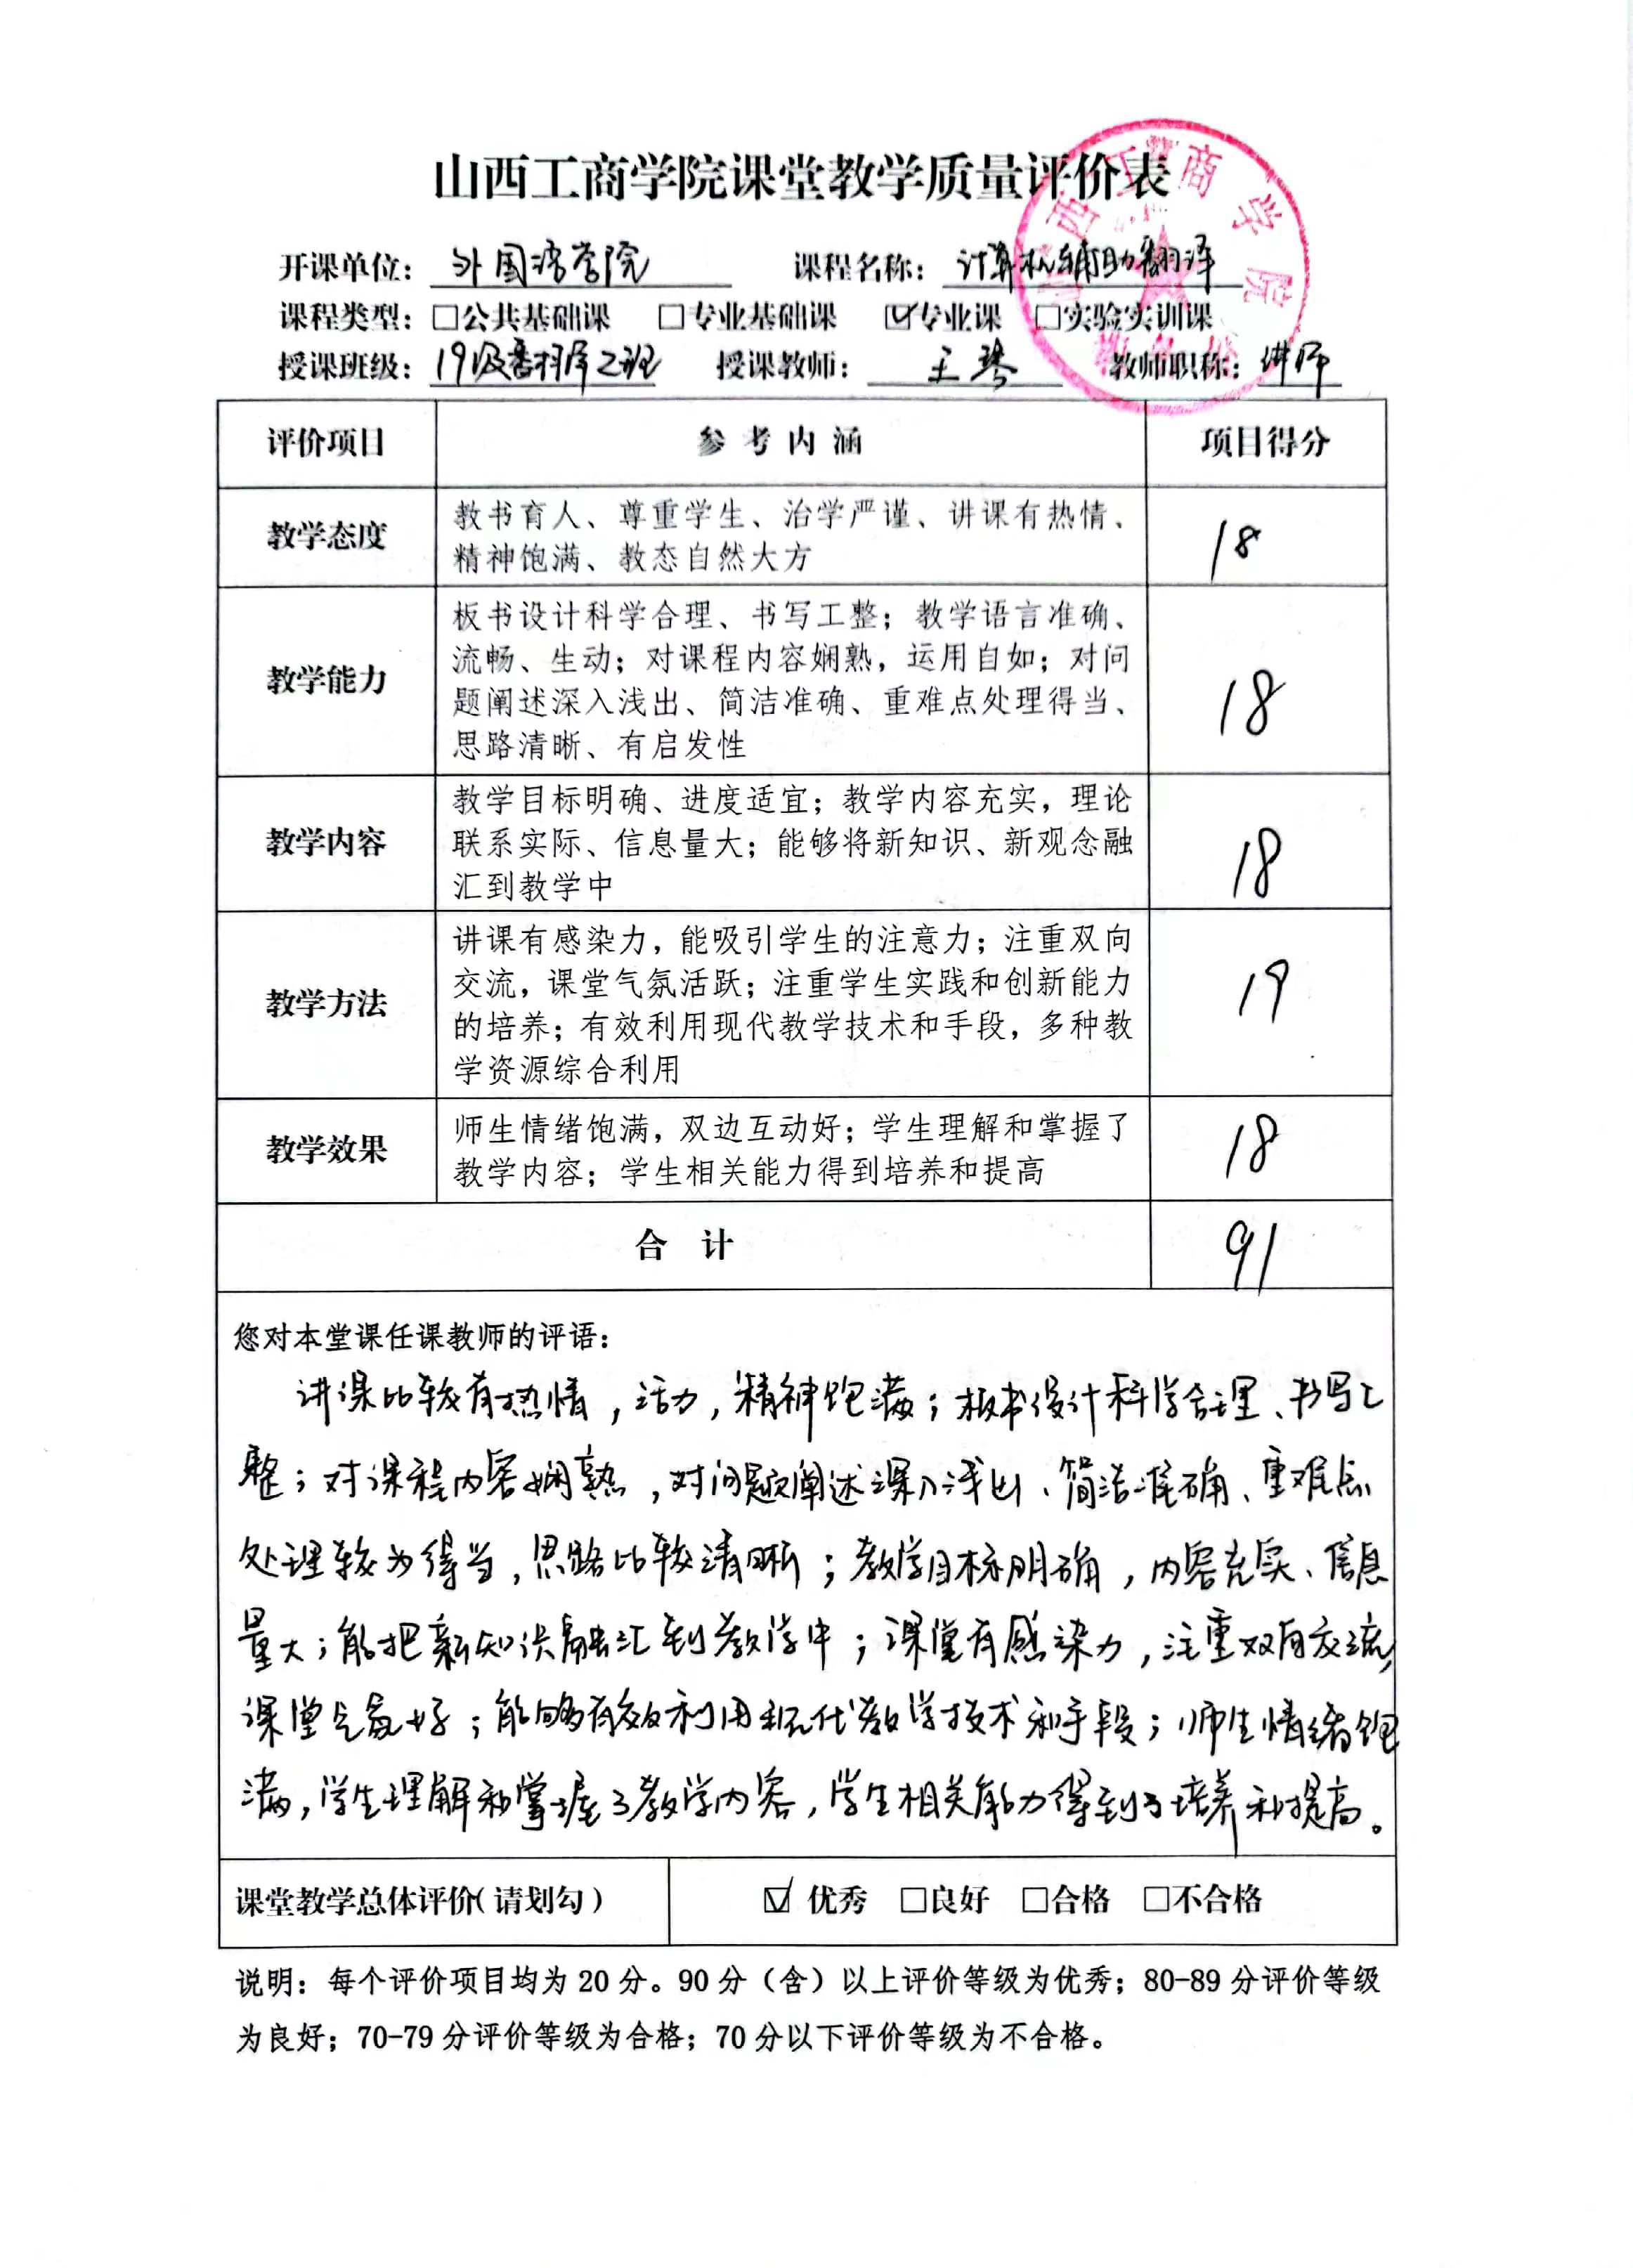 山西工商学院课堂教学质量评价表
开课单位：外国语学院 课程名称：计算机辅助翻译
课程类型：□公共基础课 □专业基础课 ☑专业课 □实验实训课
授课班级：19级 2班 授课教师：王琴 教师职称：讲师
山西工商学院
评价项目 参考内涵 项目得分
教学态度
教书育人、尊重学生、治学严谨、讲课有热情、
精神饱满、教态自然大方
18
教学能力
板书设计科学合理、书写工整；教学语言准确、
流畅、生动；对课程内容娴熟，运用自如；对问
题阐述深入浅出、简洁准确、重难点处理得当、
思路清晰、有启发性
18
教学内容
教学目标明确、进度适宜；教学内容充实，理论
联系实际、信息量大；能够将新知识、新观念融
汇到教学中
18
教学方法
讲课有感染力，能吸引学生的注意力；注重双向
交流，课堂气氛活跃；注重学生实践和创新能力
的培养；有效利用现代教学技术和手段，多种教
学资源综合利用
19
教学效果
师生情绪饱满，双边互动好；学生理解和掌握了
教学内容；学生相关能力得到培养和提高
18
合 计 91
您对本堂课任课教师的评语：
讲课比较有热情，活力，精神饱满；板书设计科学合理、书写工
整；对课程内容娴熟，对问题阐述深入浅出、简洁准确、重难点
处理较为得当，思路比较清晰；教学目标明确，内容充实、信息
量大；能把新知识融汇到教学中；课堂有感染力，注重双向交流，
课堂气氛好；能够有效利用现代教学技术和手段；师生情绪饱
满，学生理解和掌握了教学内容，学生相关能力得到了培养和提高。
课堂教学总体评价（请划勾） ☑优秀 □良好 □合格 □不合格
说明：每个评价项目均为20分。90分（含）以上评价等级为优秀；80-89分评价等级
为良好；70-79分评价等级为合格；70分以下评价等级为不合格。